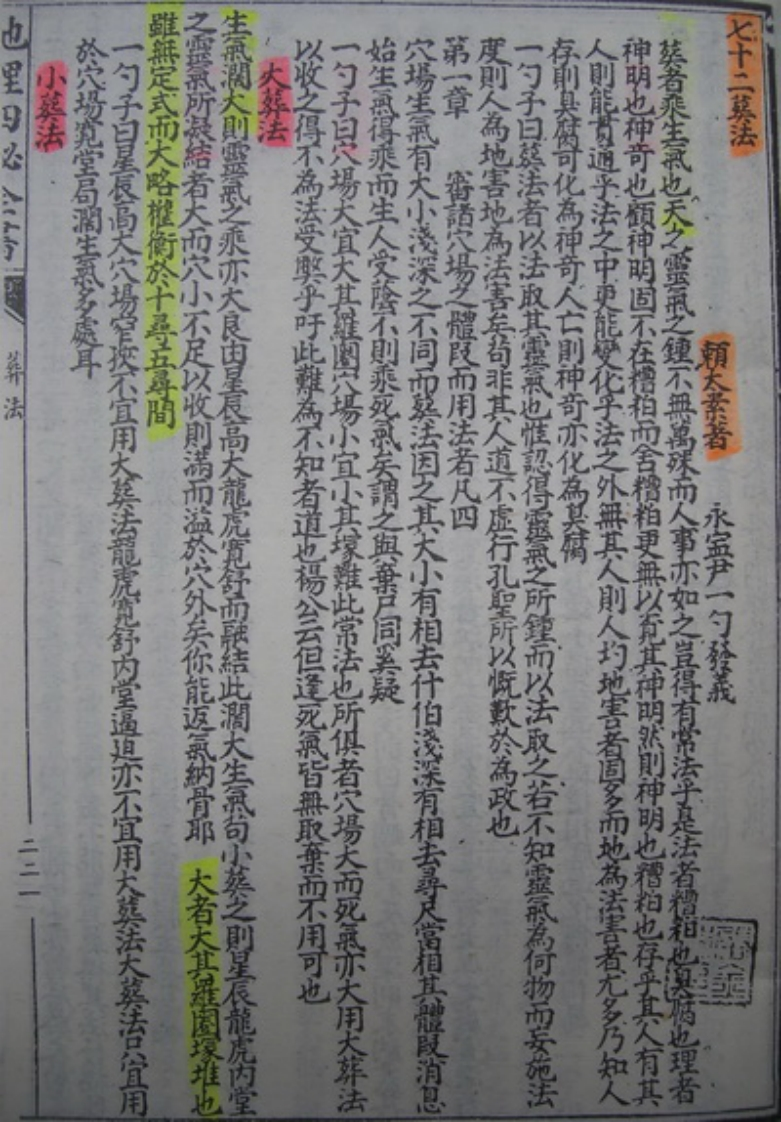 七十二葬法
賴太素著 永寍尹一勺發義
葬者乘生氣也天之靈氣之鍾不無萬殊而人事亦如之豈得有常法乎是法者糟粕也臭腐也理者
神明也神奇也顧神明固不在糟粕而舍糟粕更無以寛其神明然則神明也糟粕也存乎其人有其
人則能貫通乎法之中更能變化乎法之外無其人則人圴地害者固多而地為法害者尤多乃知人
存則臭腐可化為神奇人亡則神奇亦化為臭腐
一勺子曰葬法者以法取其靈氣也惟認得靈氣之所鍾而以法取之若不知靈氣為何物而妄施法
度則人為地害地為法害矣茍非其人道不虛行孔聖所以慨歎於為政也
第一章 審諸穴場之體段而用法者凡四
穴場生氣有大小淺深之不同而葬法因之其大小有相去什伯淺深有相去尋尺當相其體段消息
始生氣得乘而生人受陰不則乘死氣矣謂之與棄尸同奚疑
一勺子曰穴場大宜大其羅圍穴場小宜小其塚難此常法也所俱者穴場大而死氣亦大用大葬法
以收之得不為法受弊乎吁此難為不知者道也楊公云但逢死氣皆無取棄而不用可也
大葬法
生氣濶大則靈氣之乘亦大良由星辰高大龍虎寛舒而融結此濶大生氣茍小葬之則星辰龍虎內堂
之靈氣所凝結者大而穴小不足以收則滿而溢於穴外矣你能返氣納骨耶 大者大其羅圍塚堆也
雖無定式而大略權衡於十尋五尋間
一勺子曰星辰高大穴場窄狹不宜用大葬法龍虎寛舒內堂逼迫亦不宜用大葬法大葬法只宜用
於穴場寛堂局濶生氣多處耳
小葬法
地理
葬法
二二一